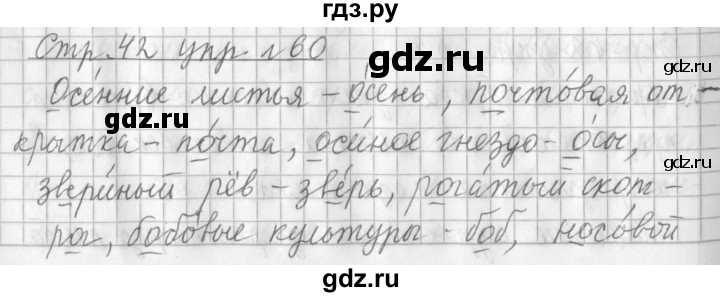 гдз.ру
Стр. 42 упр. №60
gdz.ru
Осе́нние листья - о́сень, почто́вая от-
gdz.ru
крытка - по́чта, оси́ное гнездо - о́сы,
звери́ный рёв - зве́рь, рога́тый скот -
рог, бобо́вые культуры - боб, носово́й
gdz.ru